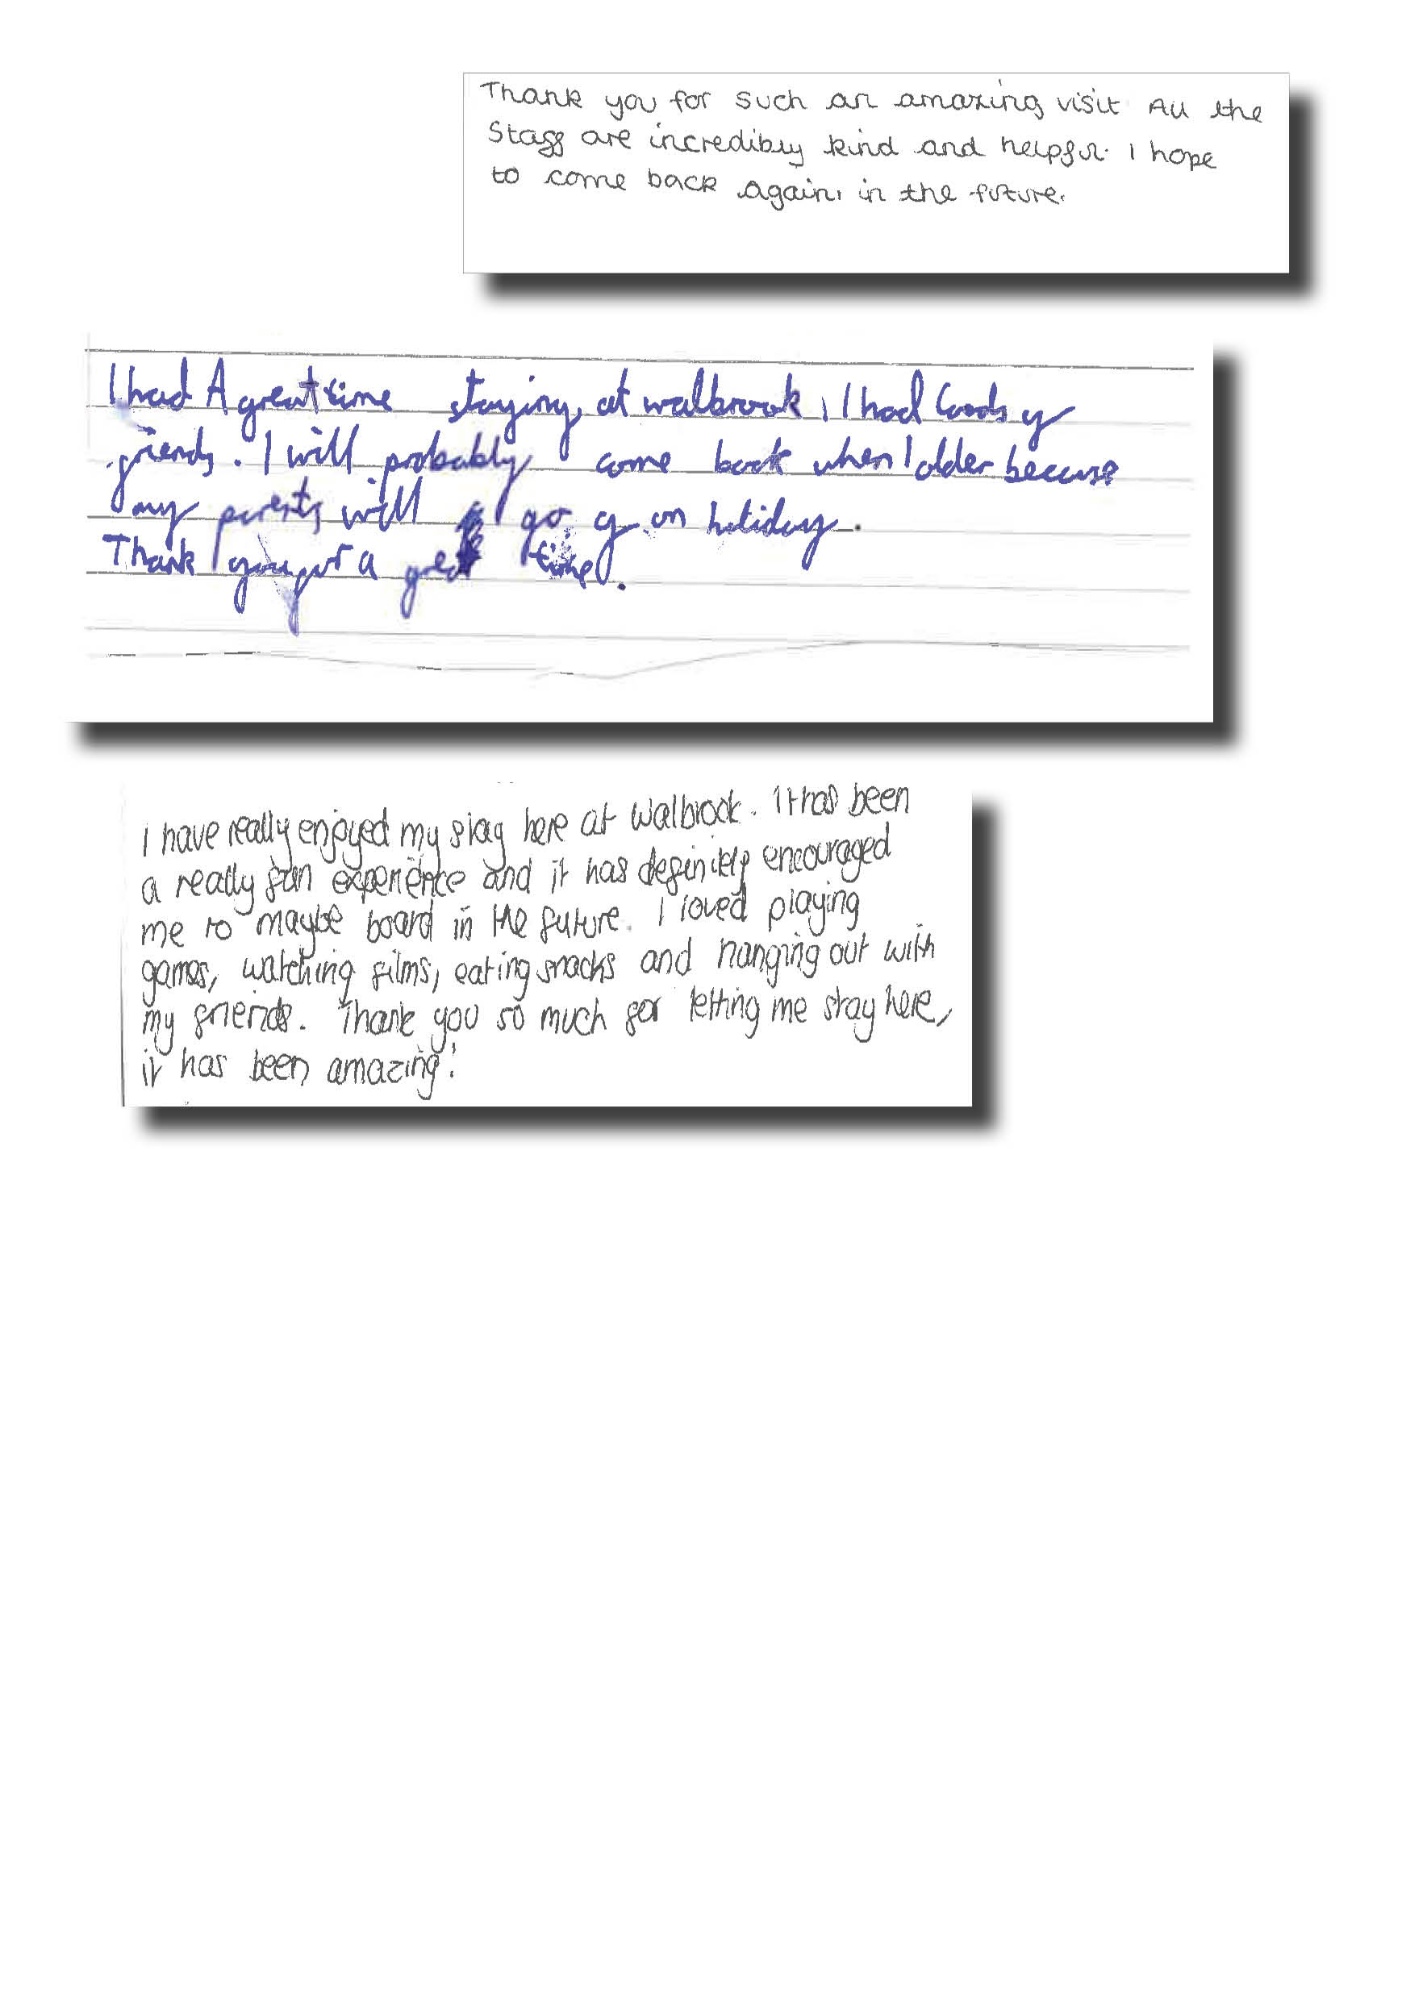 Thank you for such an amazing visit. All the
Staff are incredibly kind and helpful. I hope
to come back again, in the future.
I had A great time staying, at walbrook, I had loads of
friends. I will probably come back when I older because
my parents will go of on holiday.
Thank you for a great time.
I have really enjoyed my stay here at Walbrook. It has been
a really fun experience and it has definitely encouraged
me to maybe board in the future. I loved playing
games, watching films, eating snacks and hanging out with
my friends. Thank you so much for letting me stay here,
it has been amazing!